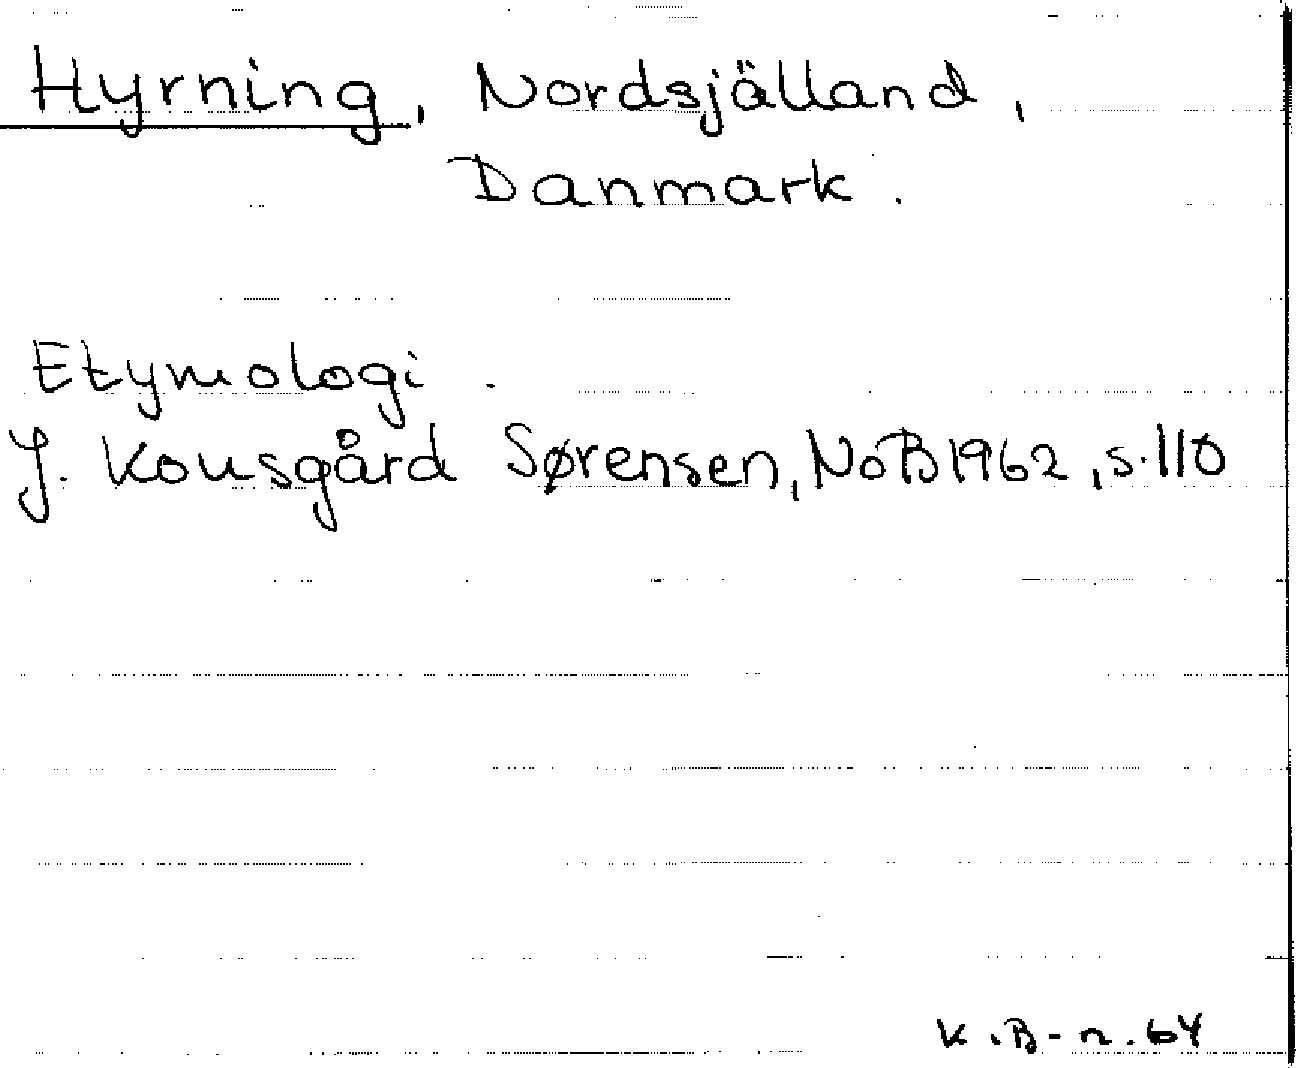 Hyrning, Nordsjälland,
Danmark.
Etymologi.
J. Kousgård Sørensen, NoB 1962, s. 110
K.B-n. 64